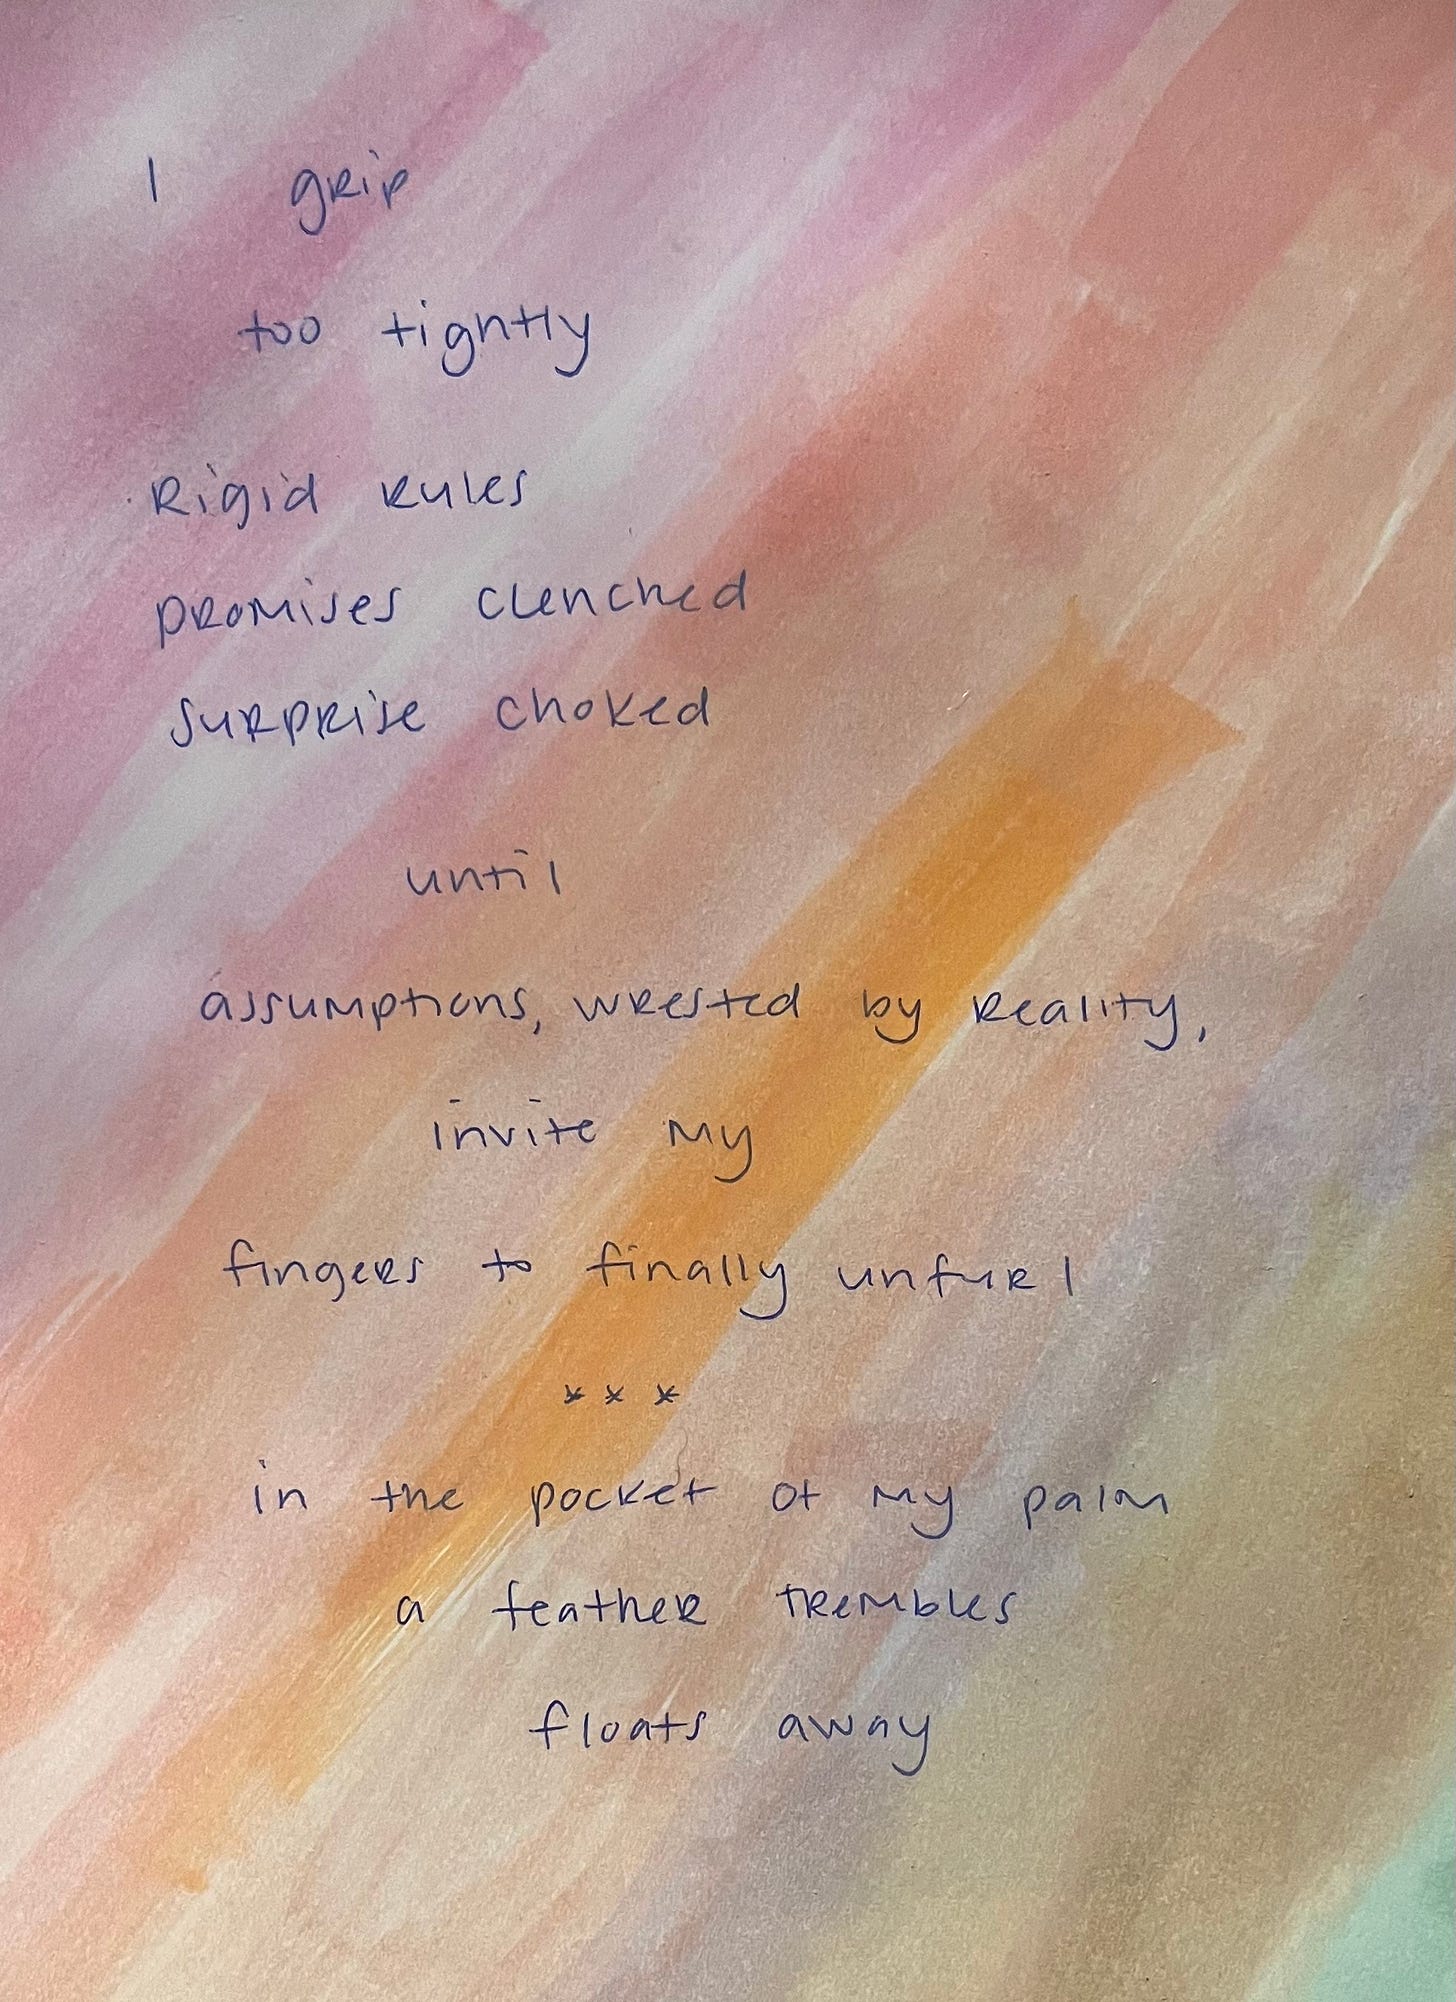 I grip
too tightly
Rigid rules
promises clenched
surprise choked
until
assumptions, wrested by reality,
invite my
fingers to finally unfurl
***
in the pocket of my palm
a feather trembles
floats away